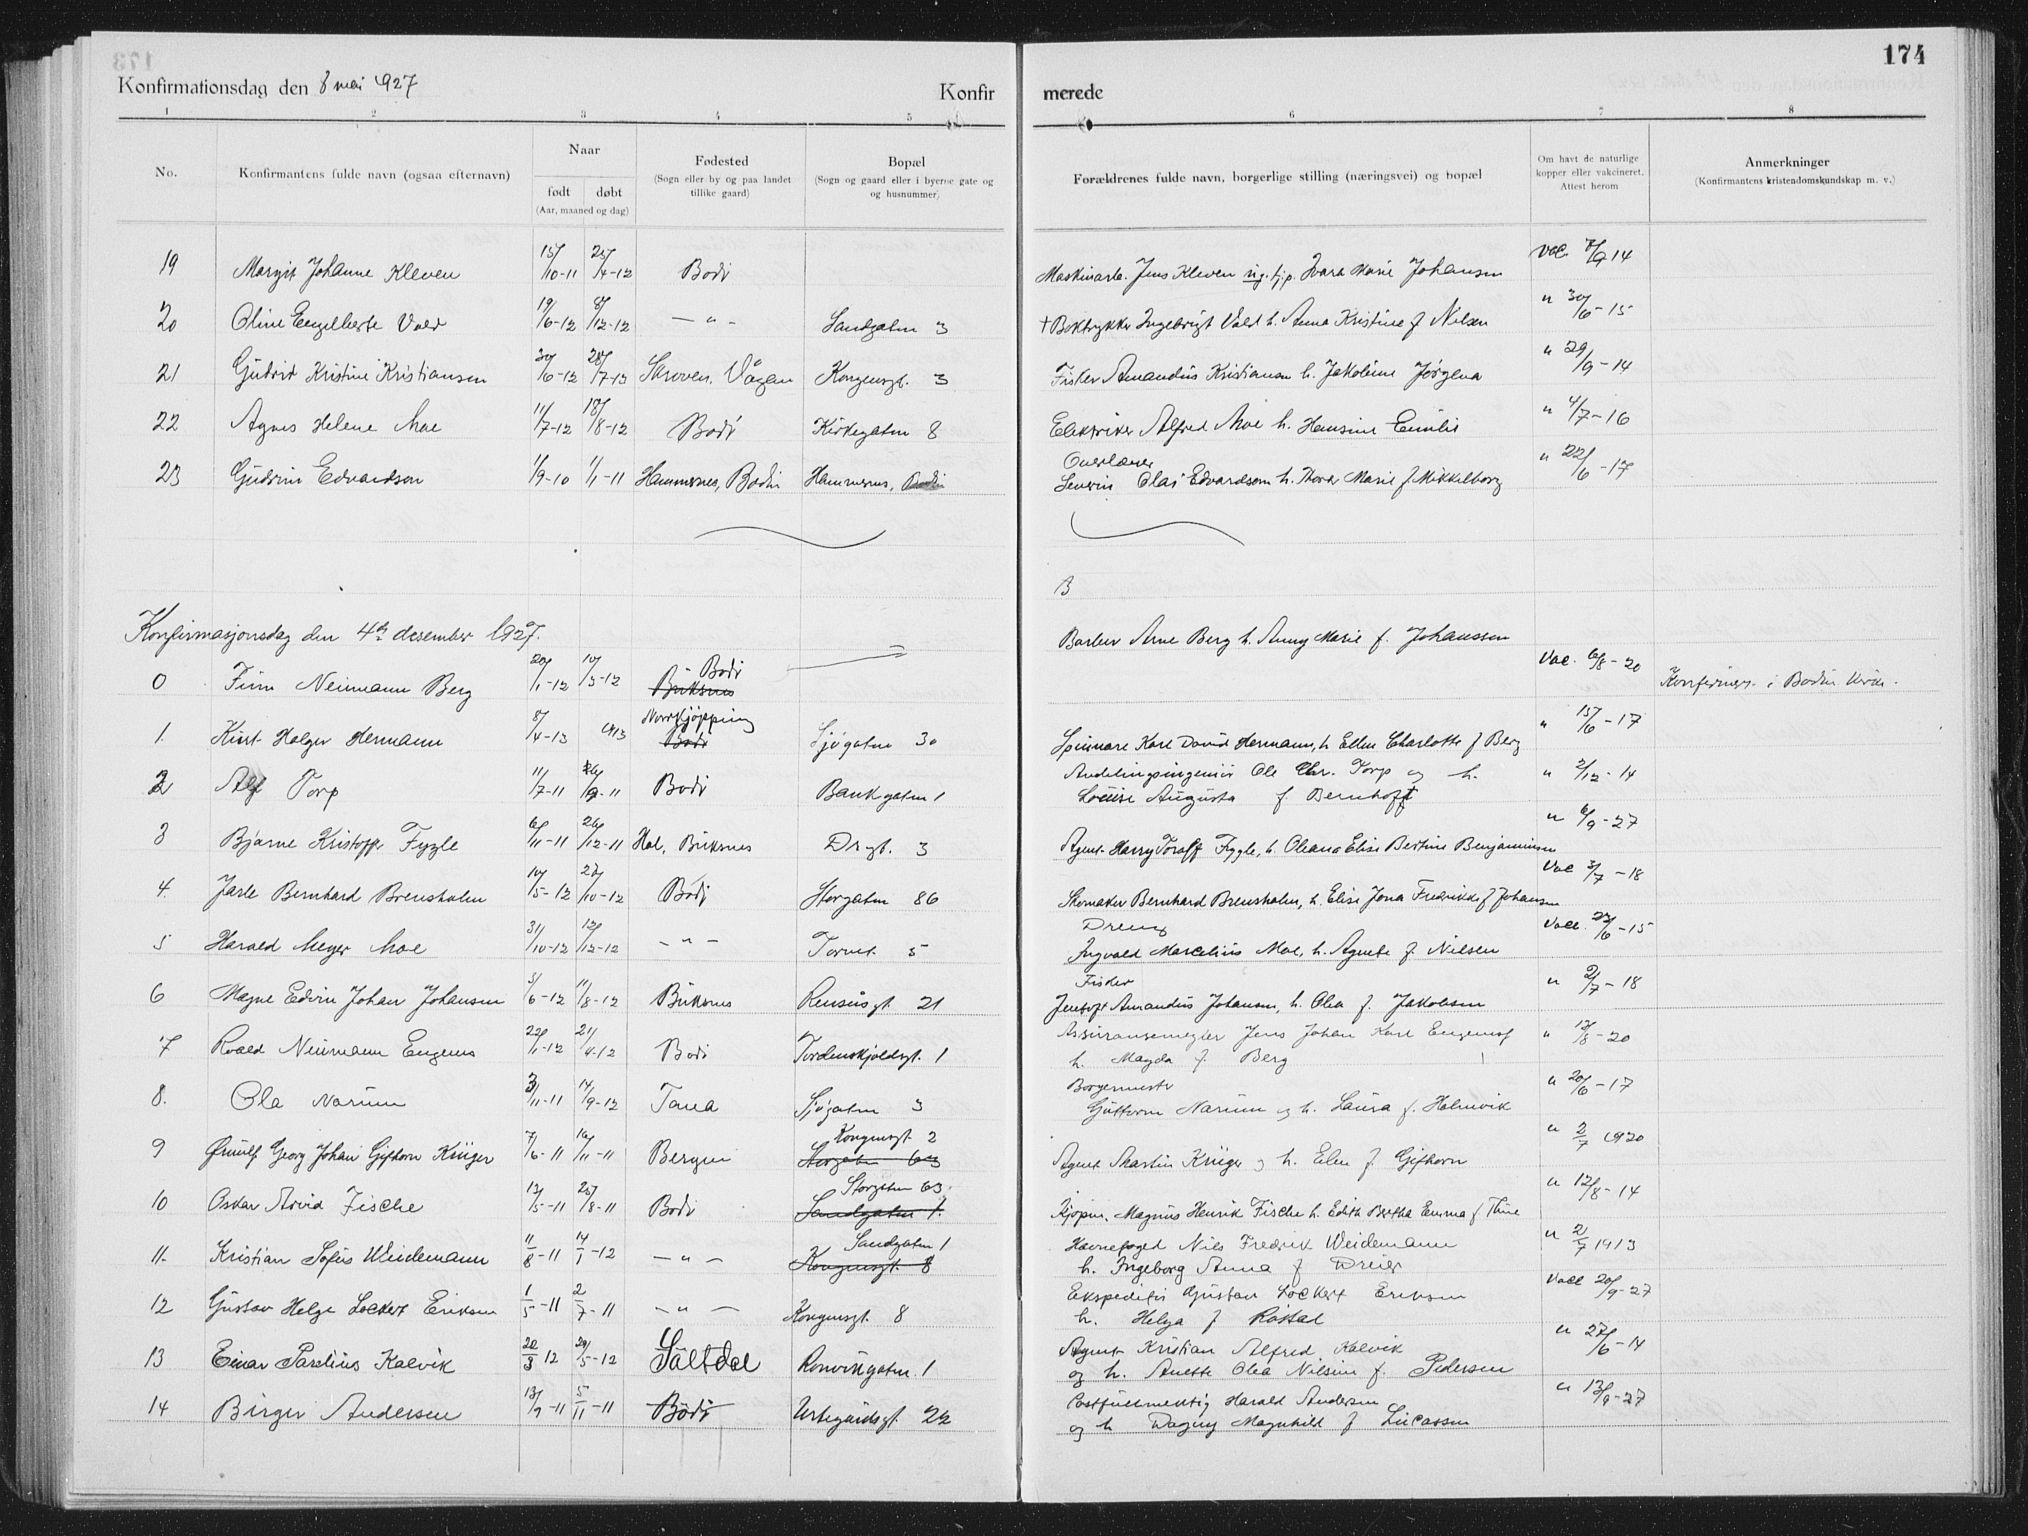 174
Konfirmationsdag den 8 mai 1927 Konfirmerede
1 2 3 4 5 6 7 8
No. Konfirmantens fulde navn (ogsaa efternavn) Naar født døbt (Aar, maaned og dag) Fødested (Sogn eller by og paa landet tillike gaard) Bopæl (Sogn og gaard eller i byerne gate og og husnummer) Forældrenes fulde navn, borgerlige stilling (næringsvei) og bopæl Om havt de naturlige kopper eller vakcineret. Attest herom Anmerkninger (Konfirmantens kristendomskundskap m. v.)
19 Margit Johanne Kleven 15/10-11 25/4-12 Bodø Maskinarb. Jens Kleven Marie Johansen Vac. 14
20 Oline Engelberte Vold 19/6-12 8/12-12 — " — Sandgaten 3 † Boktrykker Ingebrigt Vold h. Anna Kristine f. Nilsen " 30/6-15
21 Gudrid Kristine Kristiansen 30/6-12 28/7-13 Skroven, Vågan Kongensgt. 3 Fisker Amandus Kristiansen h. Jakobine Jørgena " 29/9-14
22 Agnes Helene Moe 11/7-12 18/8-12 Bodø Kirkegaten 8 Alfred Moe h. Hansine Emilie " 4/7-16
23 Gudrun Edvardson 1/9-10 1/1-11 Hammernes, Bodin Hammernes, Bodin Overlærer " 22/6-17
Severin Olai Edvardsen h. Thora Marie f. Mikkelborg
B
Konfirmasjonsdag den 4de desember 1927.
Barber Arne Berg h. Anny Marie f. Johanssen
0 Finn Neumann Berg 20/1-12 10/3-12 Bodø Buksnes Vac. 6/8-20 Konfirmert i Bodin kirke.
1. Kurt Holger Hermann 8/4-13 1913 Norrkjøpping Bodø Sjøgaten 30 Karl David Hermann, h. Ellen Charlotte f. Berg " 15/6-17
2 Alf Torp 11/7-11 26/9-11 Bodø Bankgaten 1 Avdelingsingeniør Ole Chr. Torp og h. " 2/12-14
Louise Augusta f. Bernhoft
3 Bjarne Kristoffer Fygle 6/11-11 26/12-11 Hol, Buksnes Drgt. 3 Agent Harry Toralf Fygle, h. Oleana Elise Bertine Benjaminsen " 6/9-27
4. Jarle Bernhard Brensholm 10/5-12 27/10-12 Bodø Storgaten 86 Skomaker Bernhard Brensholm, h. Elise Jona Fredrikke f Johansen Vac 3/7-18
5 Harald Meyer Moe 31/10-12 12/12-12 — " — Torvet 5 Dreng Vacc. 22/6-15
Ingvald Marcelius Moe, h. Agnete f. Nilsen
6 Magne Edvin Johan Johansen 3/6-12 11/8-12 Buksnes Rensåsgt. 21 Fisker " 2/7-18
Jentoft Amandus Johansen, h. Olea f. Jakobsen
7 Roald Neumann Engenes 22/1-12 21/4-12 Bodø Tordenskjoldsgt. 1 Assuransemegler Jens Johan Karl " 12/8-20
h. Magda f. Berg
8. Ola Narum 3/11-11 14/9-12 Tana Sjøgaten 3 Borgermester " 20/6-17
Guttorm Narum og h. Laura f. Holmvik
9 Ørnulf Georg Johan Gifhorn Krüger 7/6-11 16/11-11 Bergen Kongensgt. 2 Storgaten 63 Agent Martin Krüger og h. Elen f. Gifhorn " 2/7 1920
10 Oskar Arvid Fische 13/5-11 20/8-11 Bodø Storgaten 63. Sandgaten 1. Kjøpm. Magnus Henrik Fische h. Edith Bertha Emma f. Thine " 12/8-14
11. Kristian Sofus Weidemann 11/8-11 14/1-12 — " — Sandgaten 1 Kongensgt. 8 Havnefoged Nils Fredrik Weidemann " 2/7 1913
h. Ingeborg Anna f Dreier
12 Gustav Helge Lockert Eriksen 1/5-11 2/7-11 — " — Kongensgt. 8 Ekspeditør Gustav Lockert Eriksen Vacc 20/9-27
h. Helga f Røstad
13 Einar Parelius Kalvik 20/3 12 29/5-12 Saltdal Rønvikgaten 1 Agent Kristian Alfred Kalvik " 27/6-14
og h. Anette Olea Nilsine f. Pedersen
14 Birger Andersen 13/9-11 5/11-11 Bodø 22 Postfuldmektig Harald Andersen " 13/9-27
og h Dagny Magnhild f Lucassen